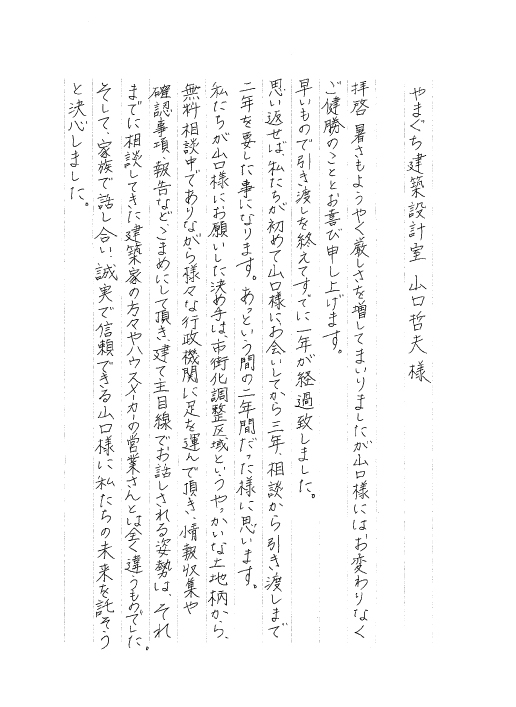 やまぐち建築設計室 山口哲夫様
拝啓 暑さもようやく厳しさを増してまいりましたが山口様にはお変わりなく
ご健勝のこととお喜び申し上げます。
早いもので引き渡しを終えてすでに一年が経過致しました。
思い返せば、私たちが初めて山口様にお会いしてから三年、相談から引き渡しまで
二年を要した事になります。あっという間の二年間だった様に思います。
私たちが山口様にお願いした決め手は、市街化調整区域というやっかいな土地柄から、
無料相談中でありながら様々な行政機関に足を運んで頂き、情報収集や
確認事項、報告などこまめにして頂き、建て主目線でお話しされる姿勢は、それ
までに相談してきた建築家の方々やハウスメーカーの営業さんとは全く違うものでした。
そして、家族で話し合い、誠実で信頼できる山口様に私たちの未来を託そう
と決心しました。